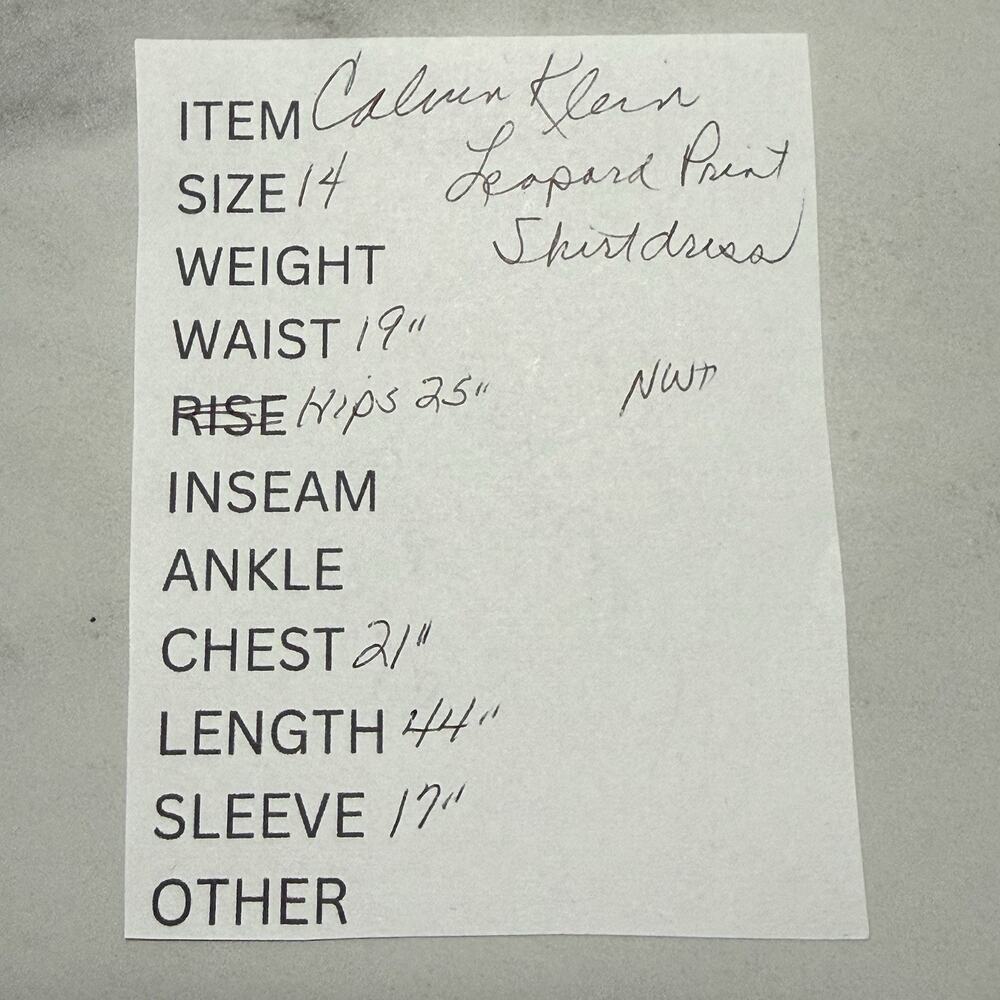 ITEM Calvin Klein
SIZE 14 Leopard Print
WEIGHT Shirtdress
WAIST 19"
RISE Hips 25" NWT
INSEAM
ANKLE
CHEST 21"
LENGTH 44"
SLEEVE 17"
OTHER